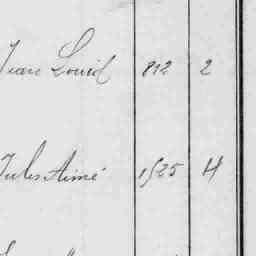 Jean Louis 812 2
Jules Aimé 1525 H